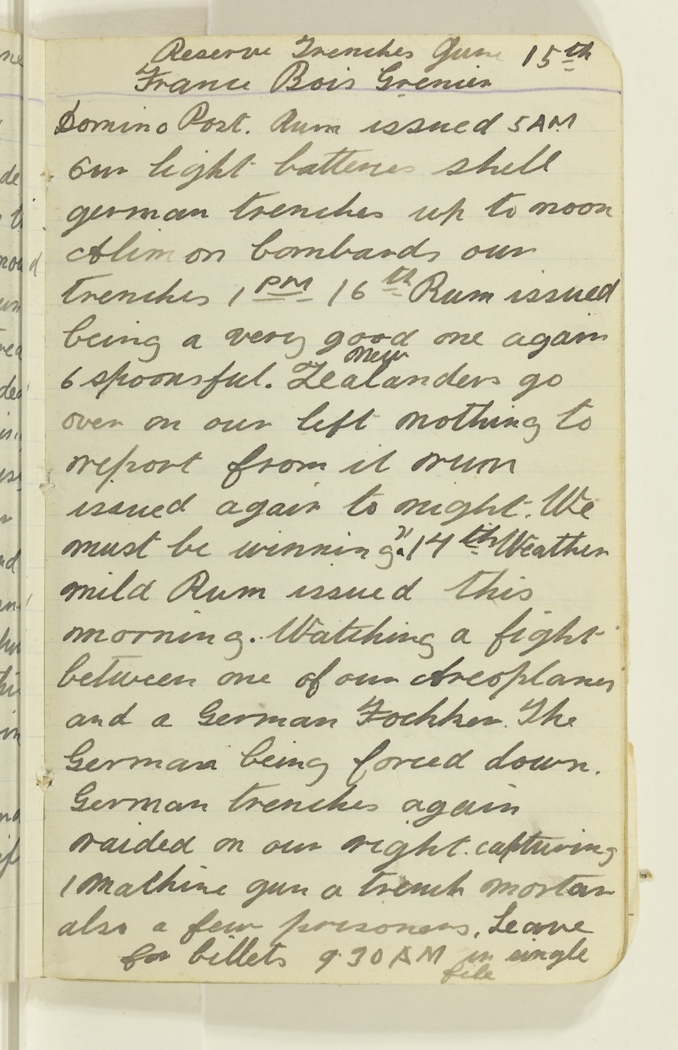 Reserve Trenches June 15th
France Bois Grenier
Domino Post. Rum issued 5 AM
Our light batteries shell
german trenches up to noon
on bombards our
trenches 1 PM 16th Rum issued
being a very good one again
6 spoonsful. New Zealanders go
over on our left nothing to
report from it rum
issued again to night. We
must be winning". 14th Weather
mild Rum issued this
morning. Watching a fight
between one of our Areoplanes
and a German Fochker. The
German being forced down.
German trenches again
raided on our right. capturing
1 machine gun a trench mortar
also a few prisoners. Leave
for billets 9.30 AM in single
file